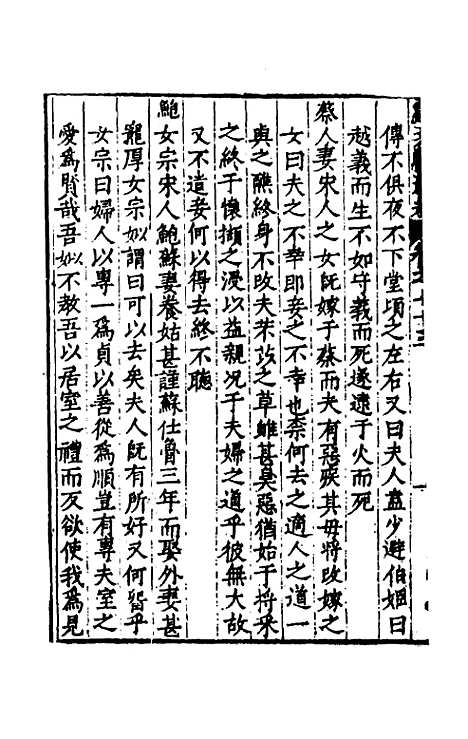 傅不俱夜不下堂頃之左右又曰夫人盍少避伯姬曰
越義而生不如守義而死遂逮于火而死
蔡人妻宋人之女旣嫁于蔡而夫有惡疾其母將改嫁之
女曰夫之不幸即妾之不幸也柰何去之適人之道一
與之醮終身不改夫芣苡之草雖甚臭惡猶始于捋采
之終于懷擷之浸以益親况于夫婦之道乎彼無大故
又不遣妾何以得去終不聽
鮑女宗宋人鮑蘇妻養姑甚謹蘇仕魯三年而娶外妻甚
寵厚女宗姒謂曰可以去矣夫人旣有所好又何畱乎
女宗曰婦人以專一爲貞以善從爲順豈有專夫室之
愛爲賢哉吾姒不教吾以居室之禮而反欲使我爲見